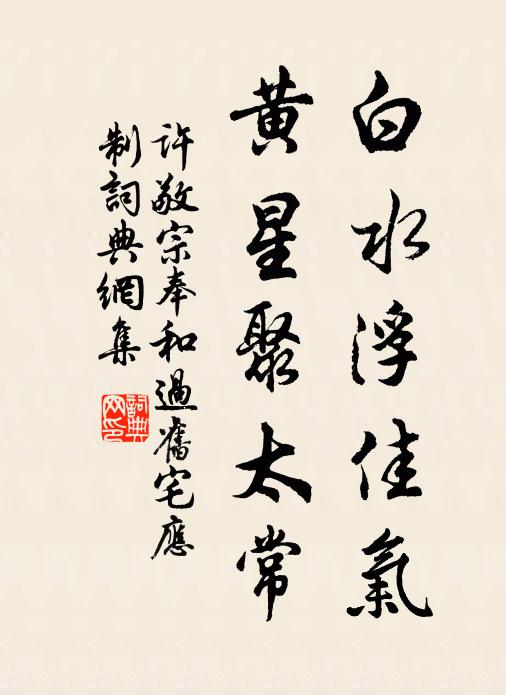 白水浮佳氣
黃星聚太常
許敬宗奉和過舊宅應
制詞典網集
詞典
网印